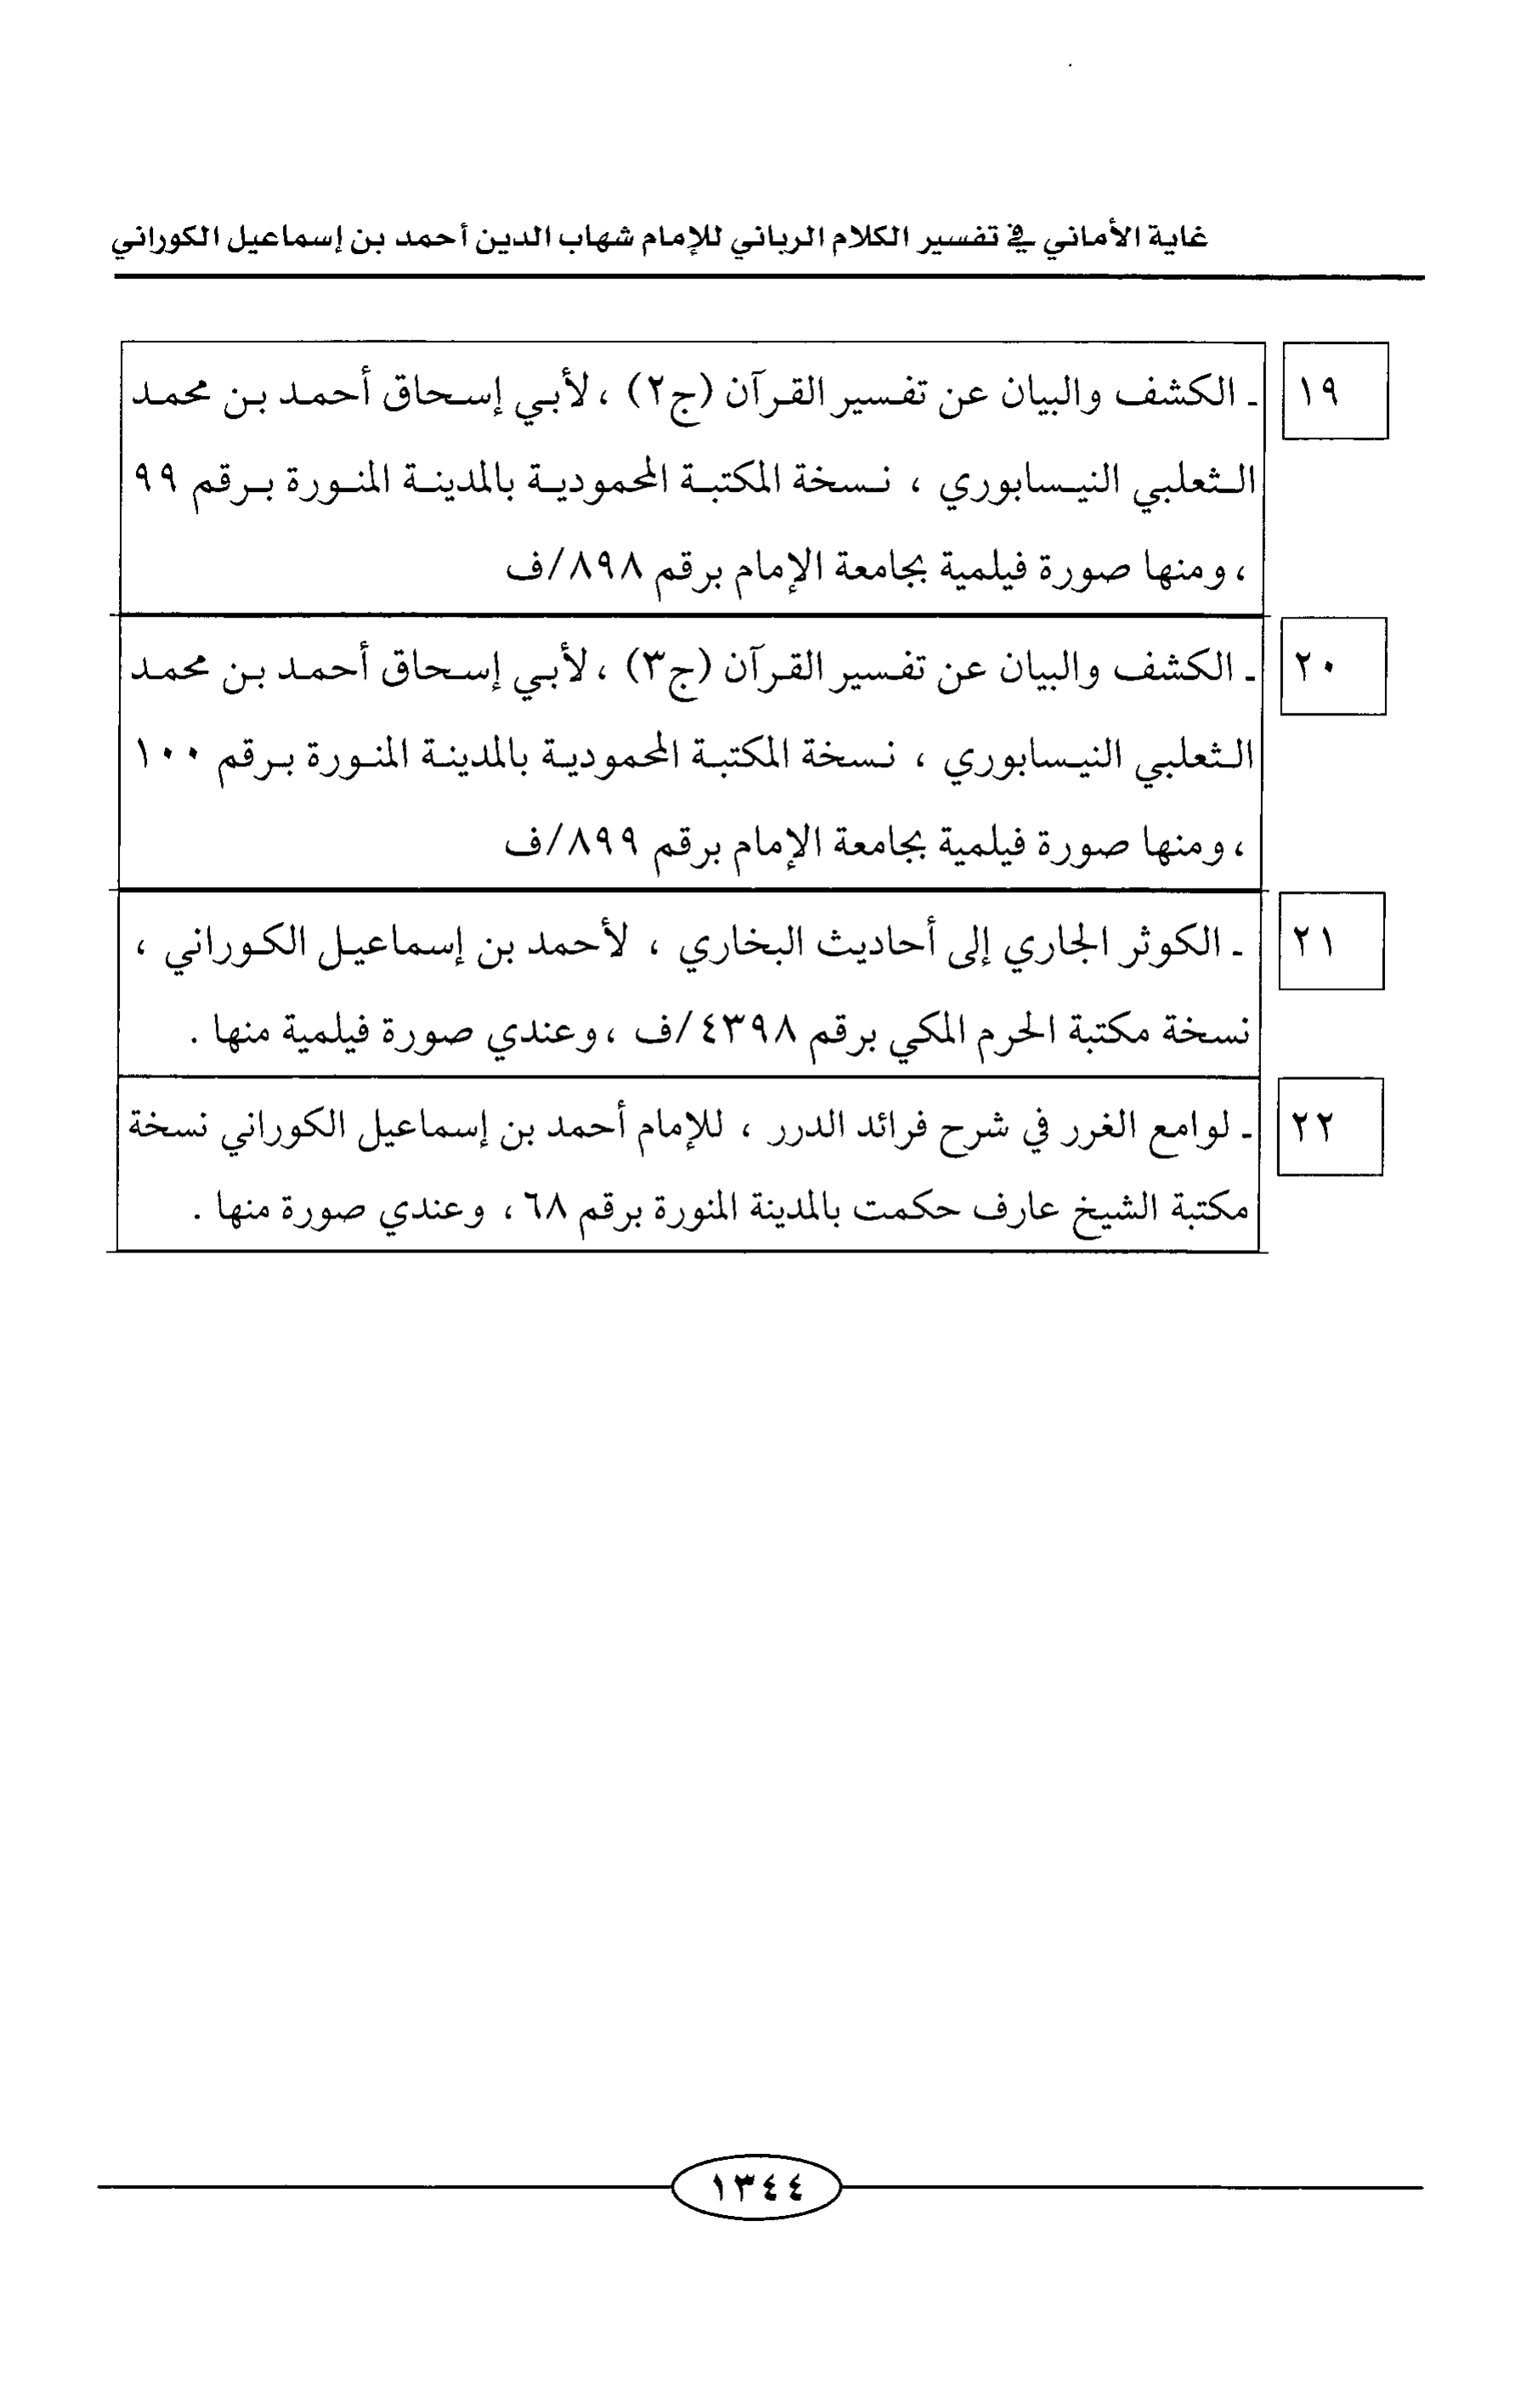 غاية الأماني في تفسير الكلام الرباني للإمام شهاب الدين أحمد بن إسماعيل الكوراني
١٩
ـ الكشف والبيان عن تفسير القرآن (ج٢) ، لأبي إسحاق أحمد بن محمد
الثعلبي النيسابوري ، نسخة المكتبة المحمودية بالمدينة المنورة برقم ٩٩
، ومنها صورة فيلمية بجامعة الإمام برقم ٨٩٨/ف
٢٠
ـ الكشف والبيان عن تفسير القرآن (ج٣) ، لأبي إسحاق أحمد بن محمد
الثعلبي النيسابوري ، نسخة المكتبة المحمودية بالمدينة المنورة برقم ١٠٠
، ومنها صورة فيلمية بجامعة الإمام برقم ٨٩٩/ف
٢١
ـ الكوثر الجاري إلى أحاديث البخاري ، لأحمد بن إسماعيل الكوراني ،
نسخة مكتبة الحرم المكي برقم ٤٣٩٨/ف ، وعندي صورة فيلمية منها .
٢٢
ـ لوامع الغرر في شرح فرائد الدرر ، للإمام أحمد بن إسماعيل الكوراني نسخة
مكتبة الشيخ عارف حكمت بالمدينة المنورة برقم ٦٨ ، وعندي صورة منها .
١٣٤٤